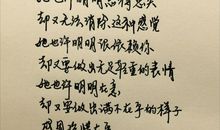 她也许明明忘得忘失
却又无法消除这种感觉
她也许明明很依赖你
却又要做出无足轻重的表情
她也许明明在意,
却又要做出满不在乎的样子